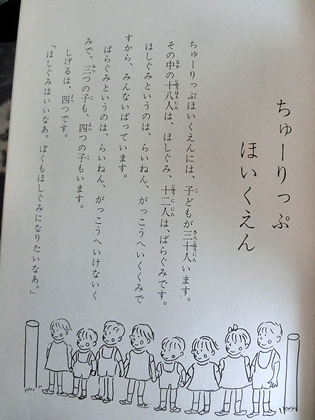 ちゅーりっぷ
ほいくえん
ちゅーりっぷほいくえんには、子どもが三十人います。
その中の十八人は、ほしぐみ、十二人は、ばらぐみです。
ほしぐみというのは、らいねん、がっこうへいくくみで
すから、みんないばっています。
ばらぐみというのは、らいねん、がっこうへいけないく
みで、三つの子も、四つの子もいます。
しげるは、四つです。
「ほしぐみはいいなあ。ぼくもほしぐみになりたいなあ。」